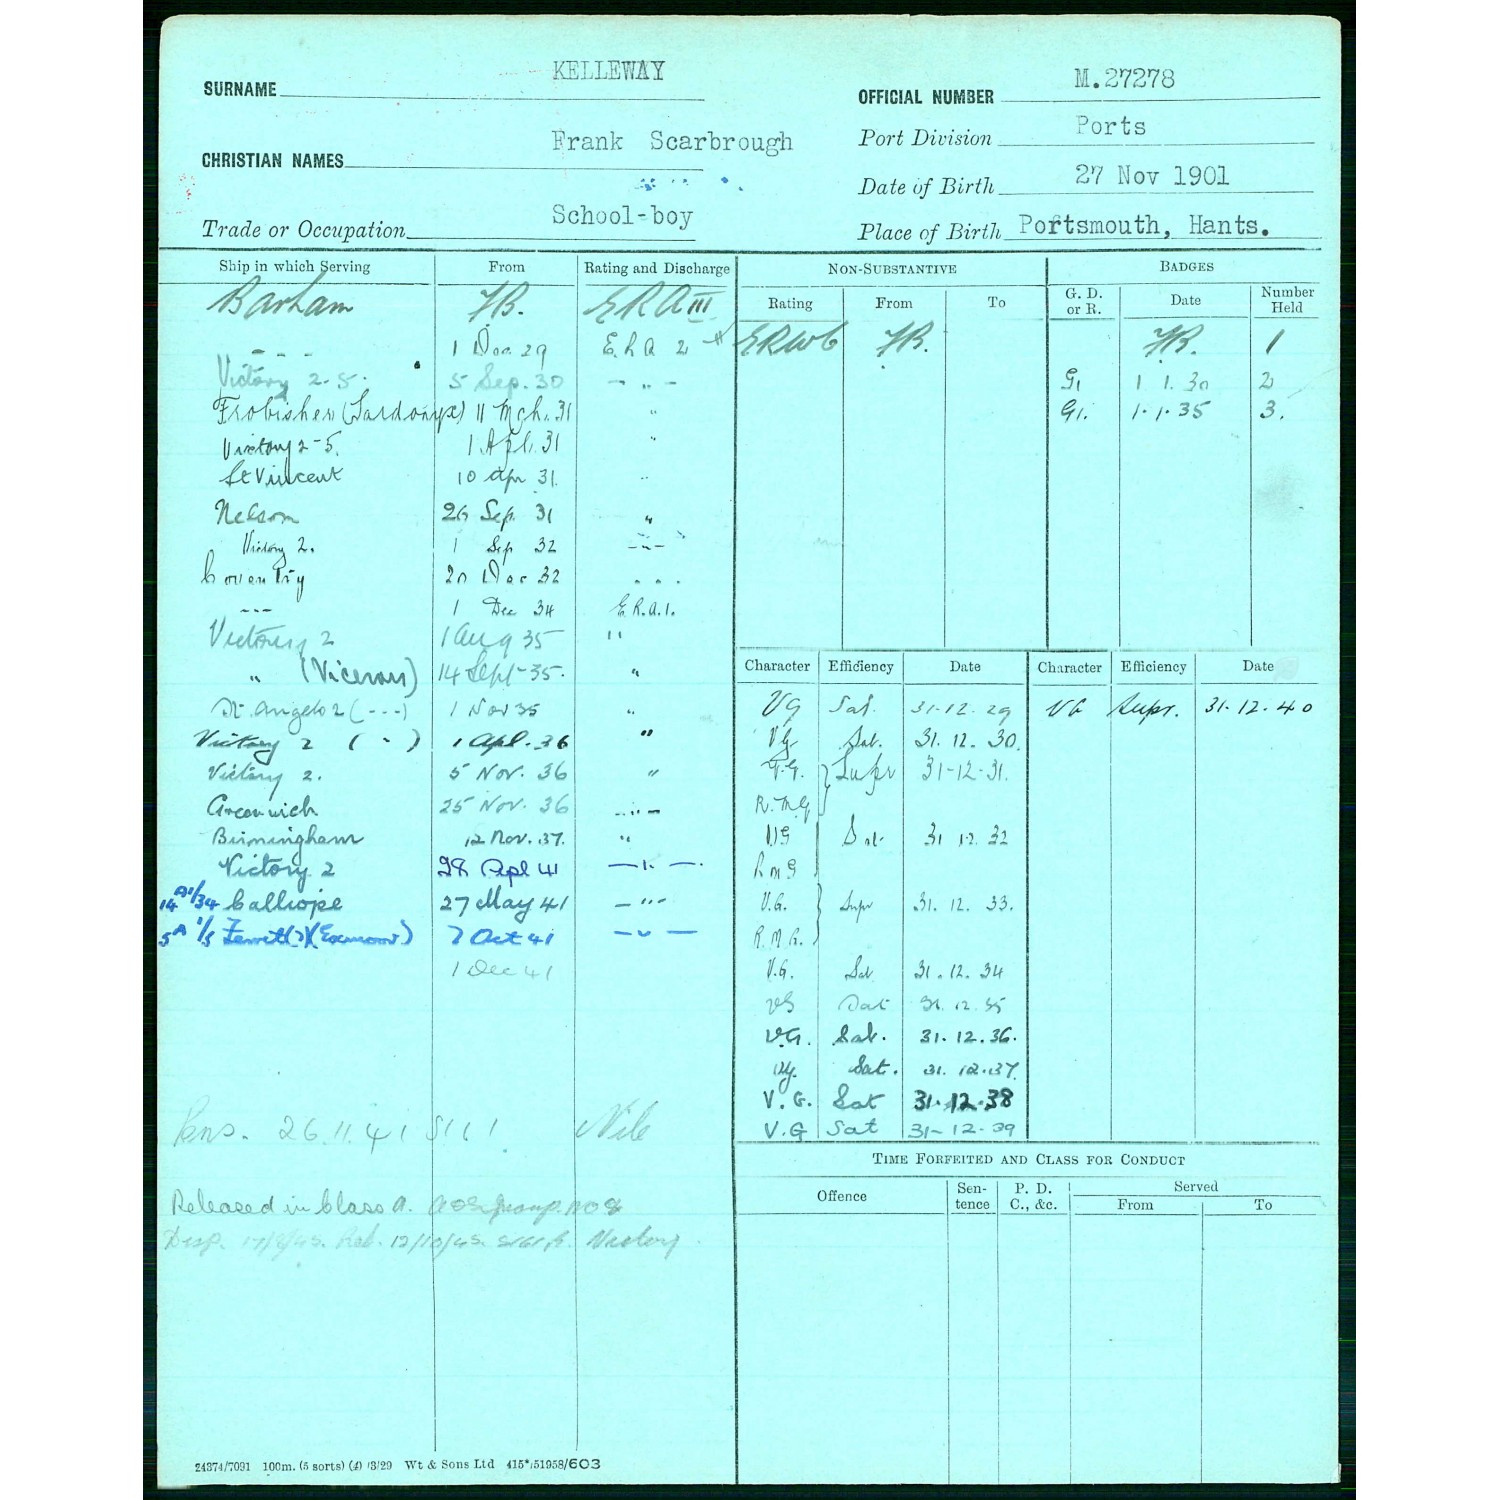 SURNAME KELLEWAY
OFFICIAL NUMBER M.27278
Port Division Ports
CHRISTIAN NAMES Frank Scarbrough
Date of Birth 27 Nov 1901
Trade or Occupation School-boy
Place of Birth Portsmouth, Hants.
Ship in which Serving From Rating and Discharge
Barham ERA III
- - - 1 Dec. 29 E.R.A 2
Victory 2-5. 5 Sep. 30 - " -
Frobisher (Sardonyx) 11 Mch. 31 "
Victory 2-5. 1 Apl. 31 "
St Vincent 10 Apr 31. "
Nelson 26 Sep. 31 "
Victory 2. 1 Sep 32 - " -
Coventry 20 Dec 32 " " "
- - - 1 Dec 34 E.R.A.1.
Victory 2 1 Aug 35 "
" (Viceroy) 14 Sept-35. "
St. Angelo 2 (---) 1 Nov 35 "
Victory 2 ( " ) 1 Apl. 36 "
Victory 2. 5 Nov. 36 "
Greenwich 25 Nov. 36 - " -
Birmingham 12 Nov. 37. "
Victory 2 28 Apl 41 - " -
Calliope 27 May 41 - " -
(Exmoor) 7 Oct 41 - " -
1 Dec 41
Pens. 26.11.41 Nile
Released in Class A.
Victory
24374/7091 100m. (5 sorts) (4) 3/29 Wt & Sons Ltd 415*/51958/603
NON-SUBSTANTIVE
Rating From To
BADGES
G. D. or R. Date Number Held
1
G1 1.1.30 2
G1. 1.1.35 3.
Character Efficiency Date Character Efficiency Date
VG Sat. 31-12.29 VG Supr. 31.12.40
VG Sat. 31.12.30.
V.G. Supr 31-12-31.
R.M.G
VG Sat 31 12.32
RMG
V.G. Supr 31.12.33.
R.M.G.
V.G. Sat 31.12.34
VG Sat 31.12.35
V.G. Sat. 31.12.36.
VG. Sat. 31.12.37.
V.G. Sat 31.12.38
V.G Sat 31-12-39
TIME FORFEITED AND CLASS FOR CONDUCT
Offence Sentence P. D. C., &c. Served From To